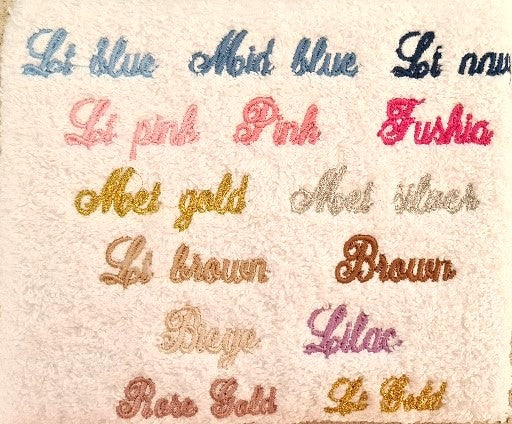 Lt blue Mid blue Lt
Lt pink Pink Fushia
Met gold Met silver
Lt brown Brown
Biege Lilac
Rose Gold Lt Gold